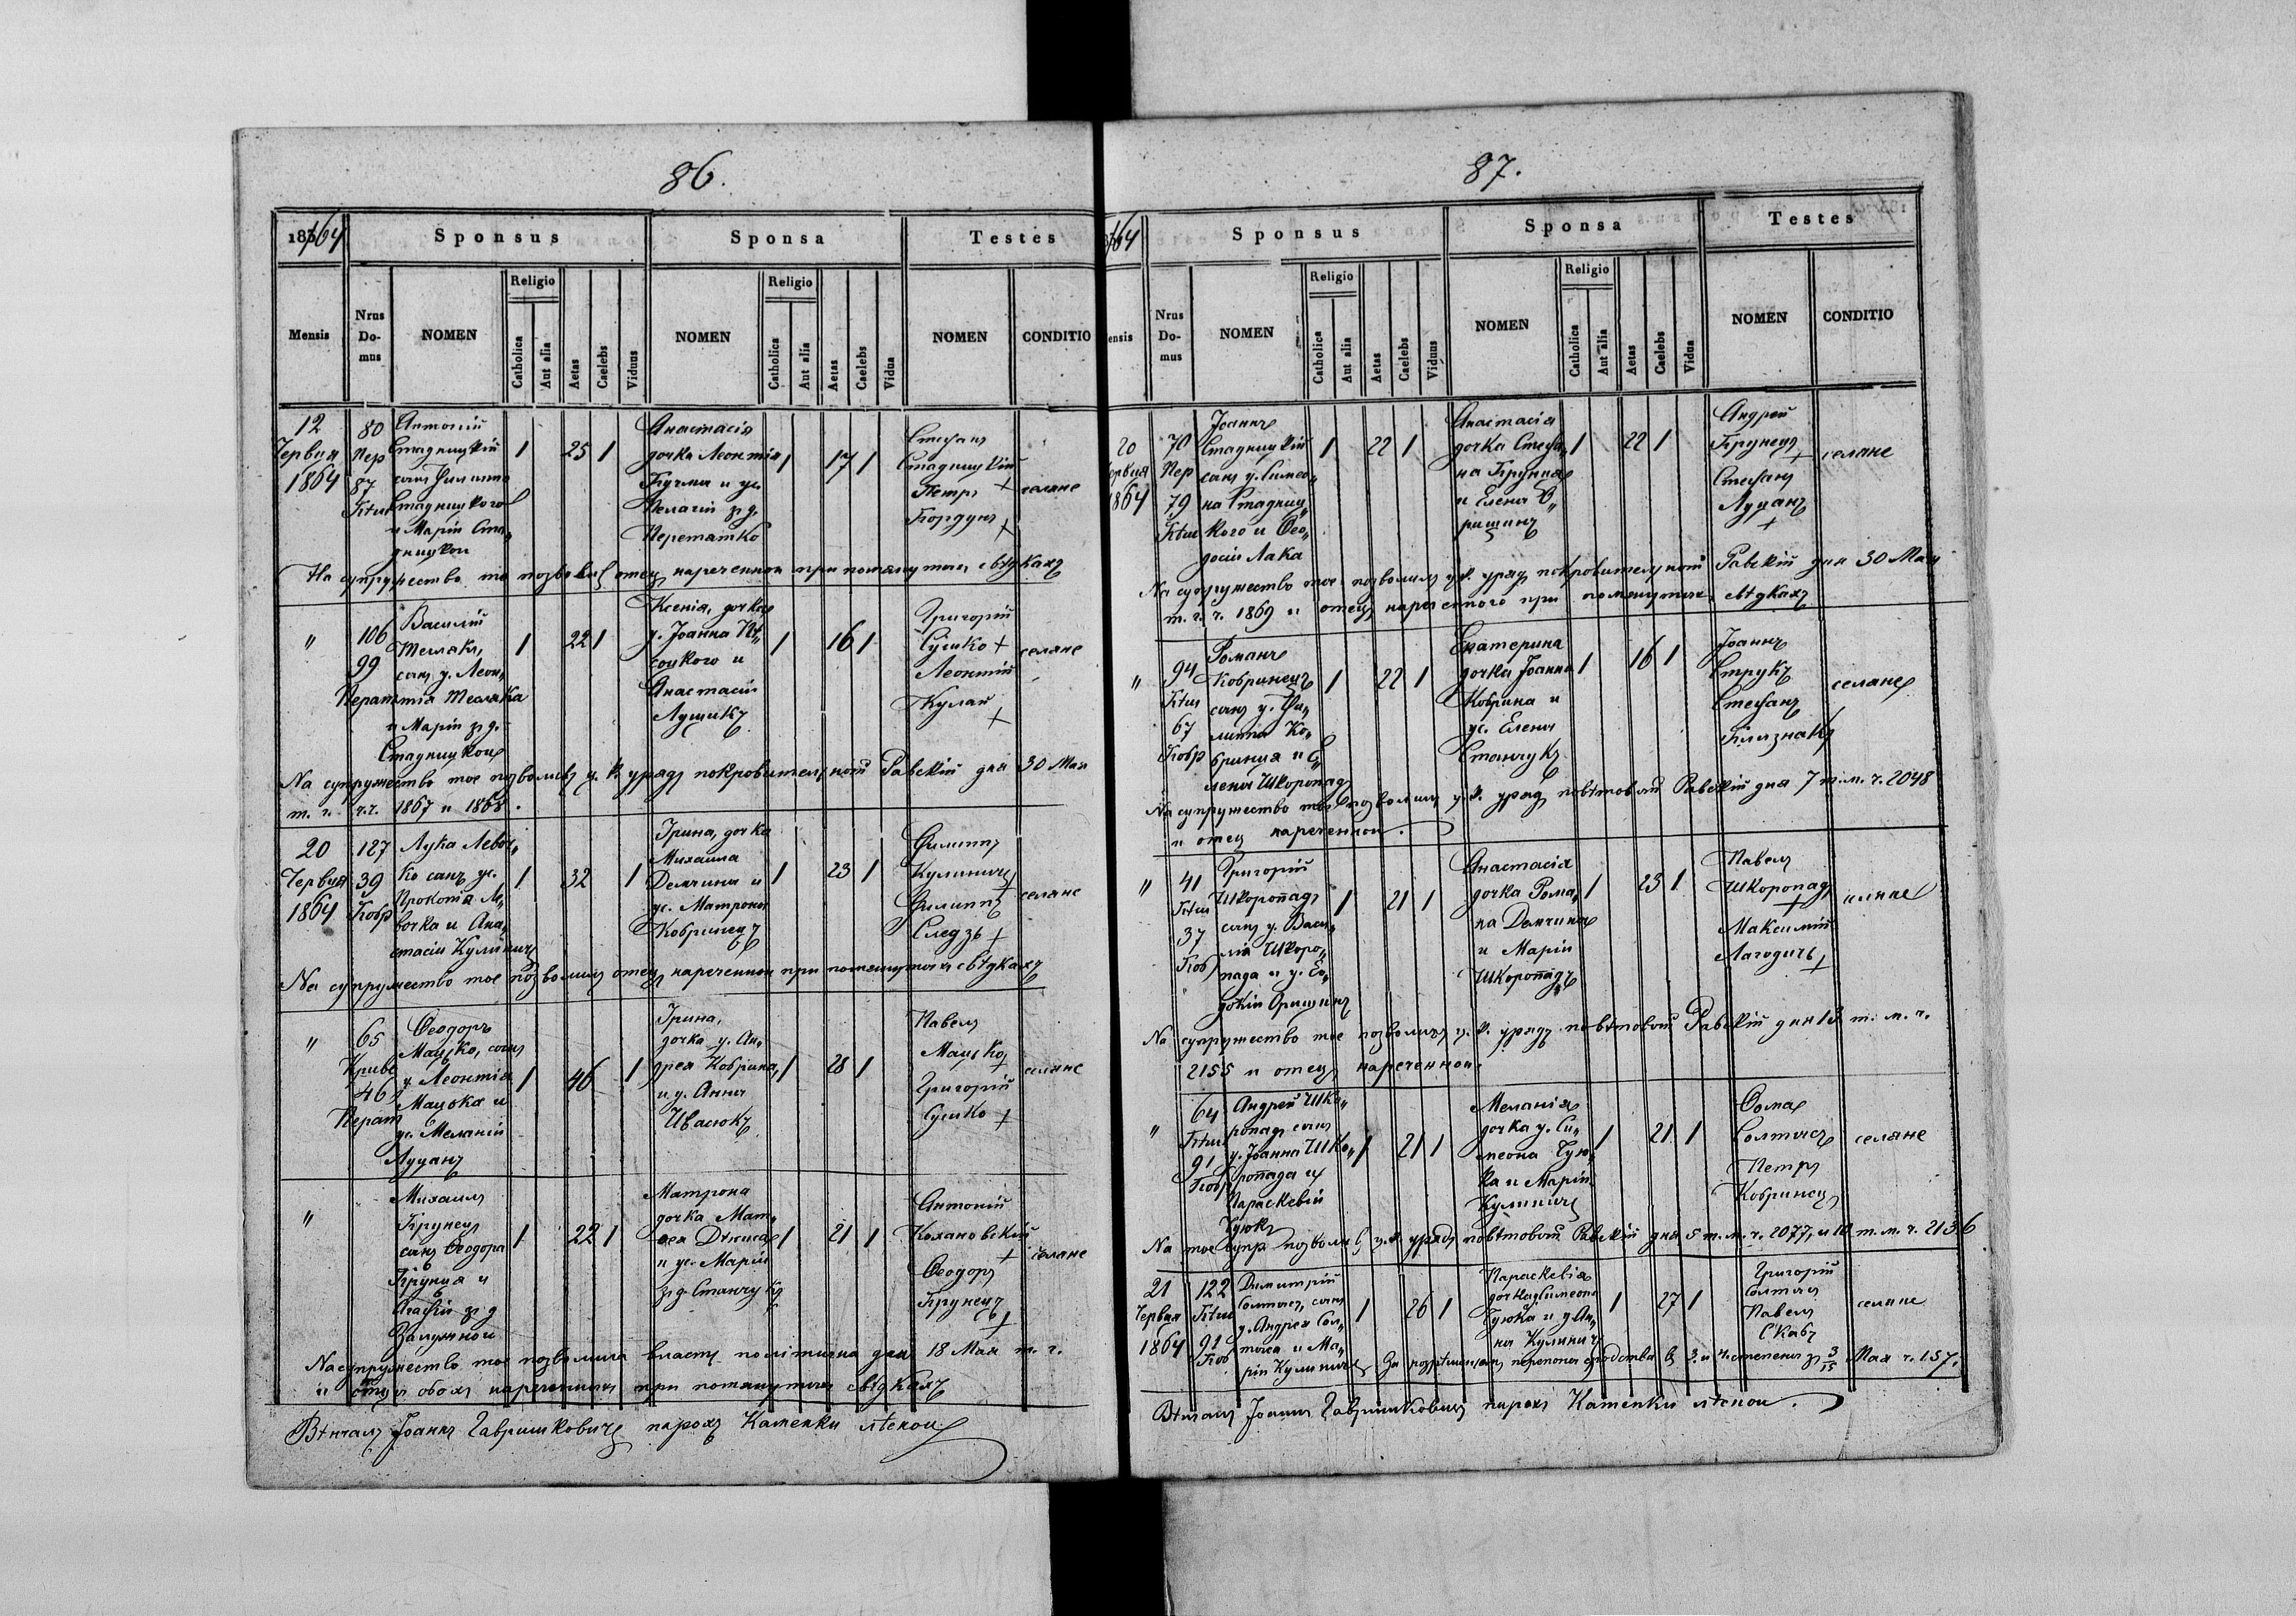 86.
1864
Sponsus
Sponsa
Testes
Mensis
Nrus Domus
NOMEN
Religio
Catholica
Aut alia
Aetas
Caelebs
Viduus
NOMEN
Religio
Catholica
Aut alia
Aetas
Caelebs
Vidua
NOMEN
CONDITIO
12
Червця
1864
80
Пер
87
Антоній
Стадницкій
сынъ Филиппа
Стадницкого
и Маріи Ста„
дницкои
1
25
1
Анастасія
дочка Леонтія
Кучма и ус.
Пелагіи зр д.
Перетятко
1
17
1
Стефанъ
Стадницкій
Петръ +
Бордунъ
+
селяне
На супружество тое позволивъ отец нареченнои при помянутыхъ свѣдкахъ
"
106
99
Перат
Василій
Тесляка,
сынъ у. Леон„
тія Тесляка
и Маріи зр д.
Стадницкои
1
22
1
Ксенія, дочка
у. Іоанна
соцкого и
Анастасіи
Лущикъ
1
16
1
Григорій
Сушко +
Леонтій
Кулай
+
селяне
На супружество тое позволивъ ц. к. урядъ покровительный Равскій дня 30 Мая
т. г. ч.ч. 1867 и 1868.
20
Червця
1864
127
39
Бобр
Лука Левоч„
ко сынъ ус.
Прокопія Ле„
вочка и Ана„
стасіи Кулиничъ
1
32
1
Ірина, дочка
Михаила
Демчина и
ус. Матроны
Кобринецъ
1
23
1
Филиппъ
Кулиничъ
+
Филиппъ
Следзь +
селяне
На супружество тое позволилъ отец нареченнои при помянутыхъ свѣдкахъ
"
65
Криве
46
Перат
Ѳеодоръ
Мацько, сынъ
у. Леонтія
Мацька и
ус. Меланіи
Луцанъ
1
46
1
Ірина,
дочка у. Ан„
дрея Кобрина,
и у. Анны
Ивасюкъ
1
28
1
Павелъ
Мацько
Григорій
Сушко +
селяне
"
Михаилъ
Брунецъ
сынъ Ѳеодора
Брунця и
Агафіи зр д
Залужнои
1
22
1
Матрона
дочка Мат„
ѳея Дениса
и ус. Маріи
зр д. Станчукъ
1
21
1
Антоній
Кохановскій
+
Ѳеодоръ
Брунецъ
+
селяне
На супружество тое позволила власть політична дня 18 Мая т. г.
и отцы обохъ нареченныхъ при помянутыхъ свѣдкахъ
Вѣнчалъ Іоаннъ Гавришкевичъ парохъ Каменки лѣснои
87.
64
Sponsus
Sponsa
Testes
ensis
Nrus Domus
NOMEN
Religio
Catholica
Aut alia
Aetas
Caelebs
Viduus
NOMEN
Religio
Catholica
Aut alia
Aetas
Caelebs
Vidua
NOMEN
CONDITIO
20
ервця
864
70
Пер
79
Іоаннъ
Стадницкій
сынъ у. Симео„
на Стадниц„
кого и Ѳео„
досіи Лака
1
22
1
Анастасія
дочка Стефа„
на Брунця
и Елены О„
ришинъ
1
22
1
Андрей
Брунецъ
+
Стефанъ
Луцанъ
+
селяне
На супружество тое позволилъ ц. к. урядъ покровительный Равскій дня 30 Мая
т. г. ч. 1869 и отецъ нареченного при помянутыхъ свѣдкахъ
"
94
67
Бобр
Романъ
Кобринецъ
сынъ у. Фи„
липпа Ко„
бринця и Е„
лены Шкоропадъ
1
22
1
Екатерина
дочка Іоанна
Кобрина и
ус. Елены
Станчукъ
1
16
1
Іоаннъ
Струкъ
Стефанъ
Близнакъ
селяне
На супружество тое позволилъ ц. к. урядъ повѣтовый Равскій дня 7 т. м. ч. 2048
и отец нареченнои.
"
41
37
Боб
Григорій
Шкоропадъ
сынъ у. Васи„
лія Шкоро„
пада и у. Ев„
докіи Оришинъ
1
21
1
Анастасія
дочка Рома„
на Демчина
и Маріи
Шкоропадъ
1
23
1
Павелъ
Шкоропадъ
+
Максимъ
Лагодичъ
+
селяне
На супружество тое позволилъ ц. к. урядъ повѣтовый Равскій дня 13 т. м. ч.
2155 и отецъ нареченнои.
"
64
91
Бобр
Андрей Шко„
ропадъ сынъ
у. Іоанна Шко„
ропада и
Параскевіи
Цюкъ
1
21
1
Меланія
дочка у. Си„
меона Цю„
ка и Маріи
Кулиничъ
1
21
1
Ѳома
Солтысъ
Петръ
Кобринецъ
селяне
На тое супр позволивъ ц. к. урядъ повѣтовый Равскій дня 5 т. м. ч. 2077, и 10 т. м. ч. 2136
21
Червця
1864
122
91
Боб
Димитрій
Солтысъ, сынъ
у. Андрея Сол„
тыса и Ма„
ріи Кулиничъ
1
26
1
Параскевія
дочка у Симеона
Цюка и у Ан„
ны Кулиничъ
1
27
1
Григорій
Солтысъ
Павелъ
Скабъ
селяне
За розрѣшеніемъ перепоны сродства въ 3. и 4. степени зр 3/15 Мая ч. 157.
Вѣнчалъ Іоаннъ Гавришкевичъ парохъ Каменки лѣснои.